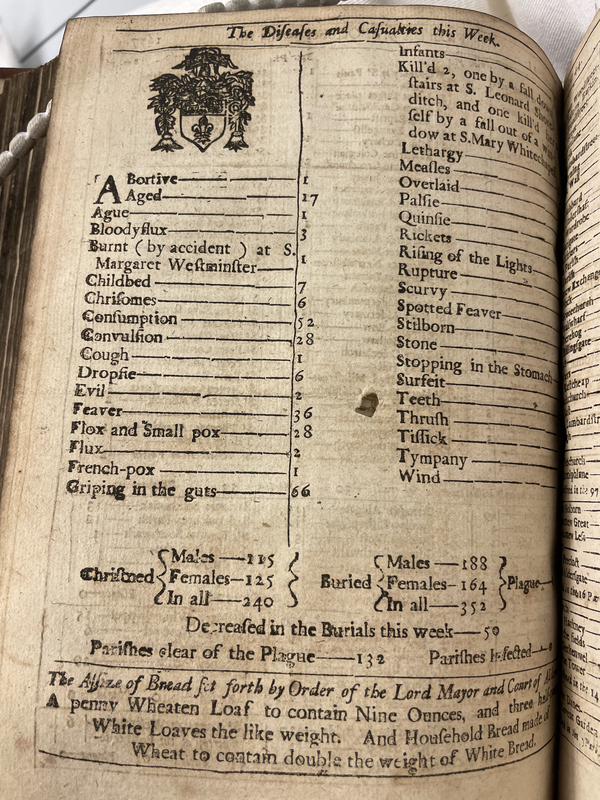 The Diſeaſes and Caſualties this Week.
ABortive 1
Aged 17
Ague 1
Bloodyflux 3
Burnt ( by accident ) at S.
Margaret Weſtminſter 1
Childbed 7
Chriſomes 6
Conſumption 52
Convulſion 28
Cough 1
Dropſie 6
Evil 2
Feaver 36
Flox and Small pox 28
Flux 2
French-pox 1
Griping in the guts 66
Infants
Kill'd 2, one by a fall down
ſtairs at S. Leonard
ditch, and one kill'd
ſelf by a fall out of a
dow at S. Mary
Lethargy
Meaſles
Overlaid
Palſie
Quinſie
Rickets
Riſing of the Lights
Rupture
Scurvy
Spotted Feaver
Stilborn
Stone
Stopping in the Stomach
Surfeit
Teeth
Thruſh
Tiſſick
Tympany
Wind
Chriſtned Males 115 Females 125 In all 240
Buried Males 188 Females 164 In all 352 Plague
Decreaſed in the Burials this week 50
Pariſhes clear of the Plague 132 Pariſhes Infected
The Aſſize of Bread ſet forth by Order of the Lord Mayor and Court of
A penny Wheaten Loaf to contain Nine Ounces, and three half
White Loaves the like weight. And Houſhold Bread made of
Wheat to contain double the weight of White Bread.